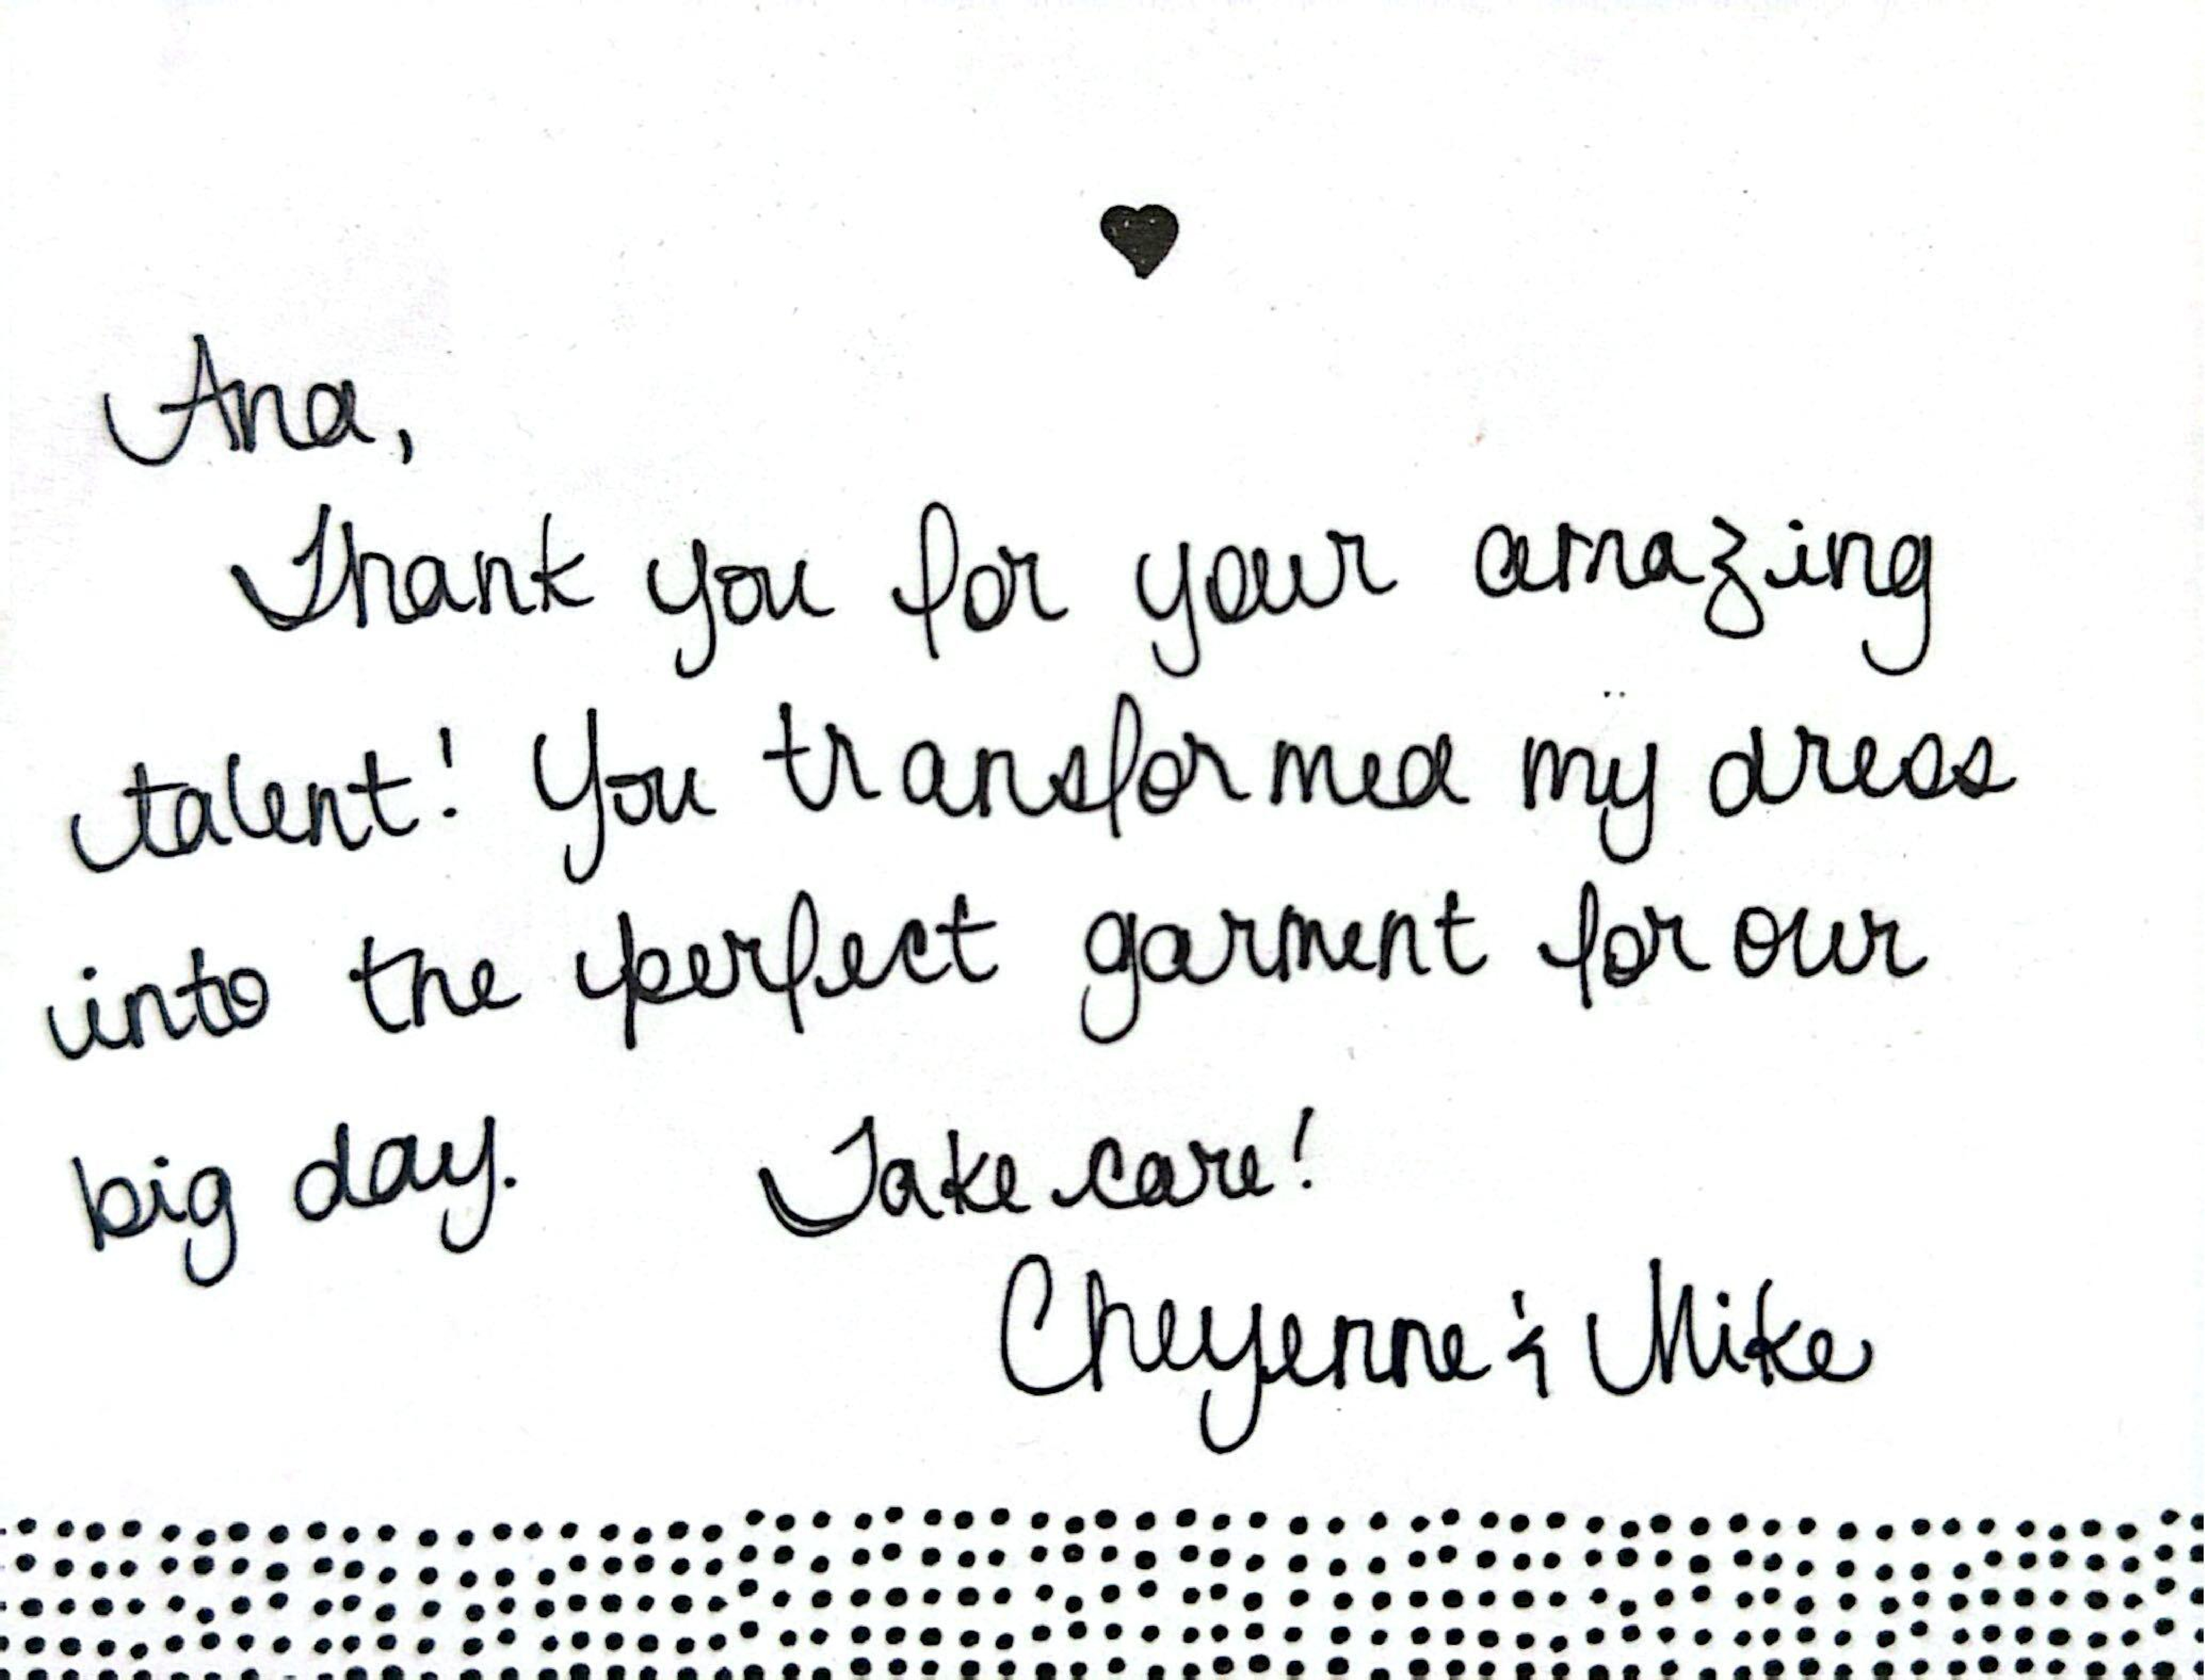 Ana,
Thank you for your amazing
talent! You transformed my dress
into the perfect garment for our
big day. Take care!
Cheyenne & Mike